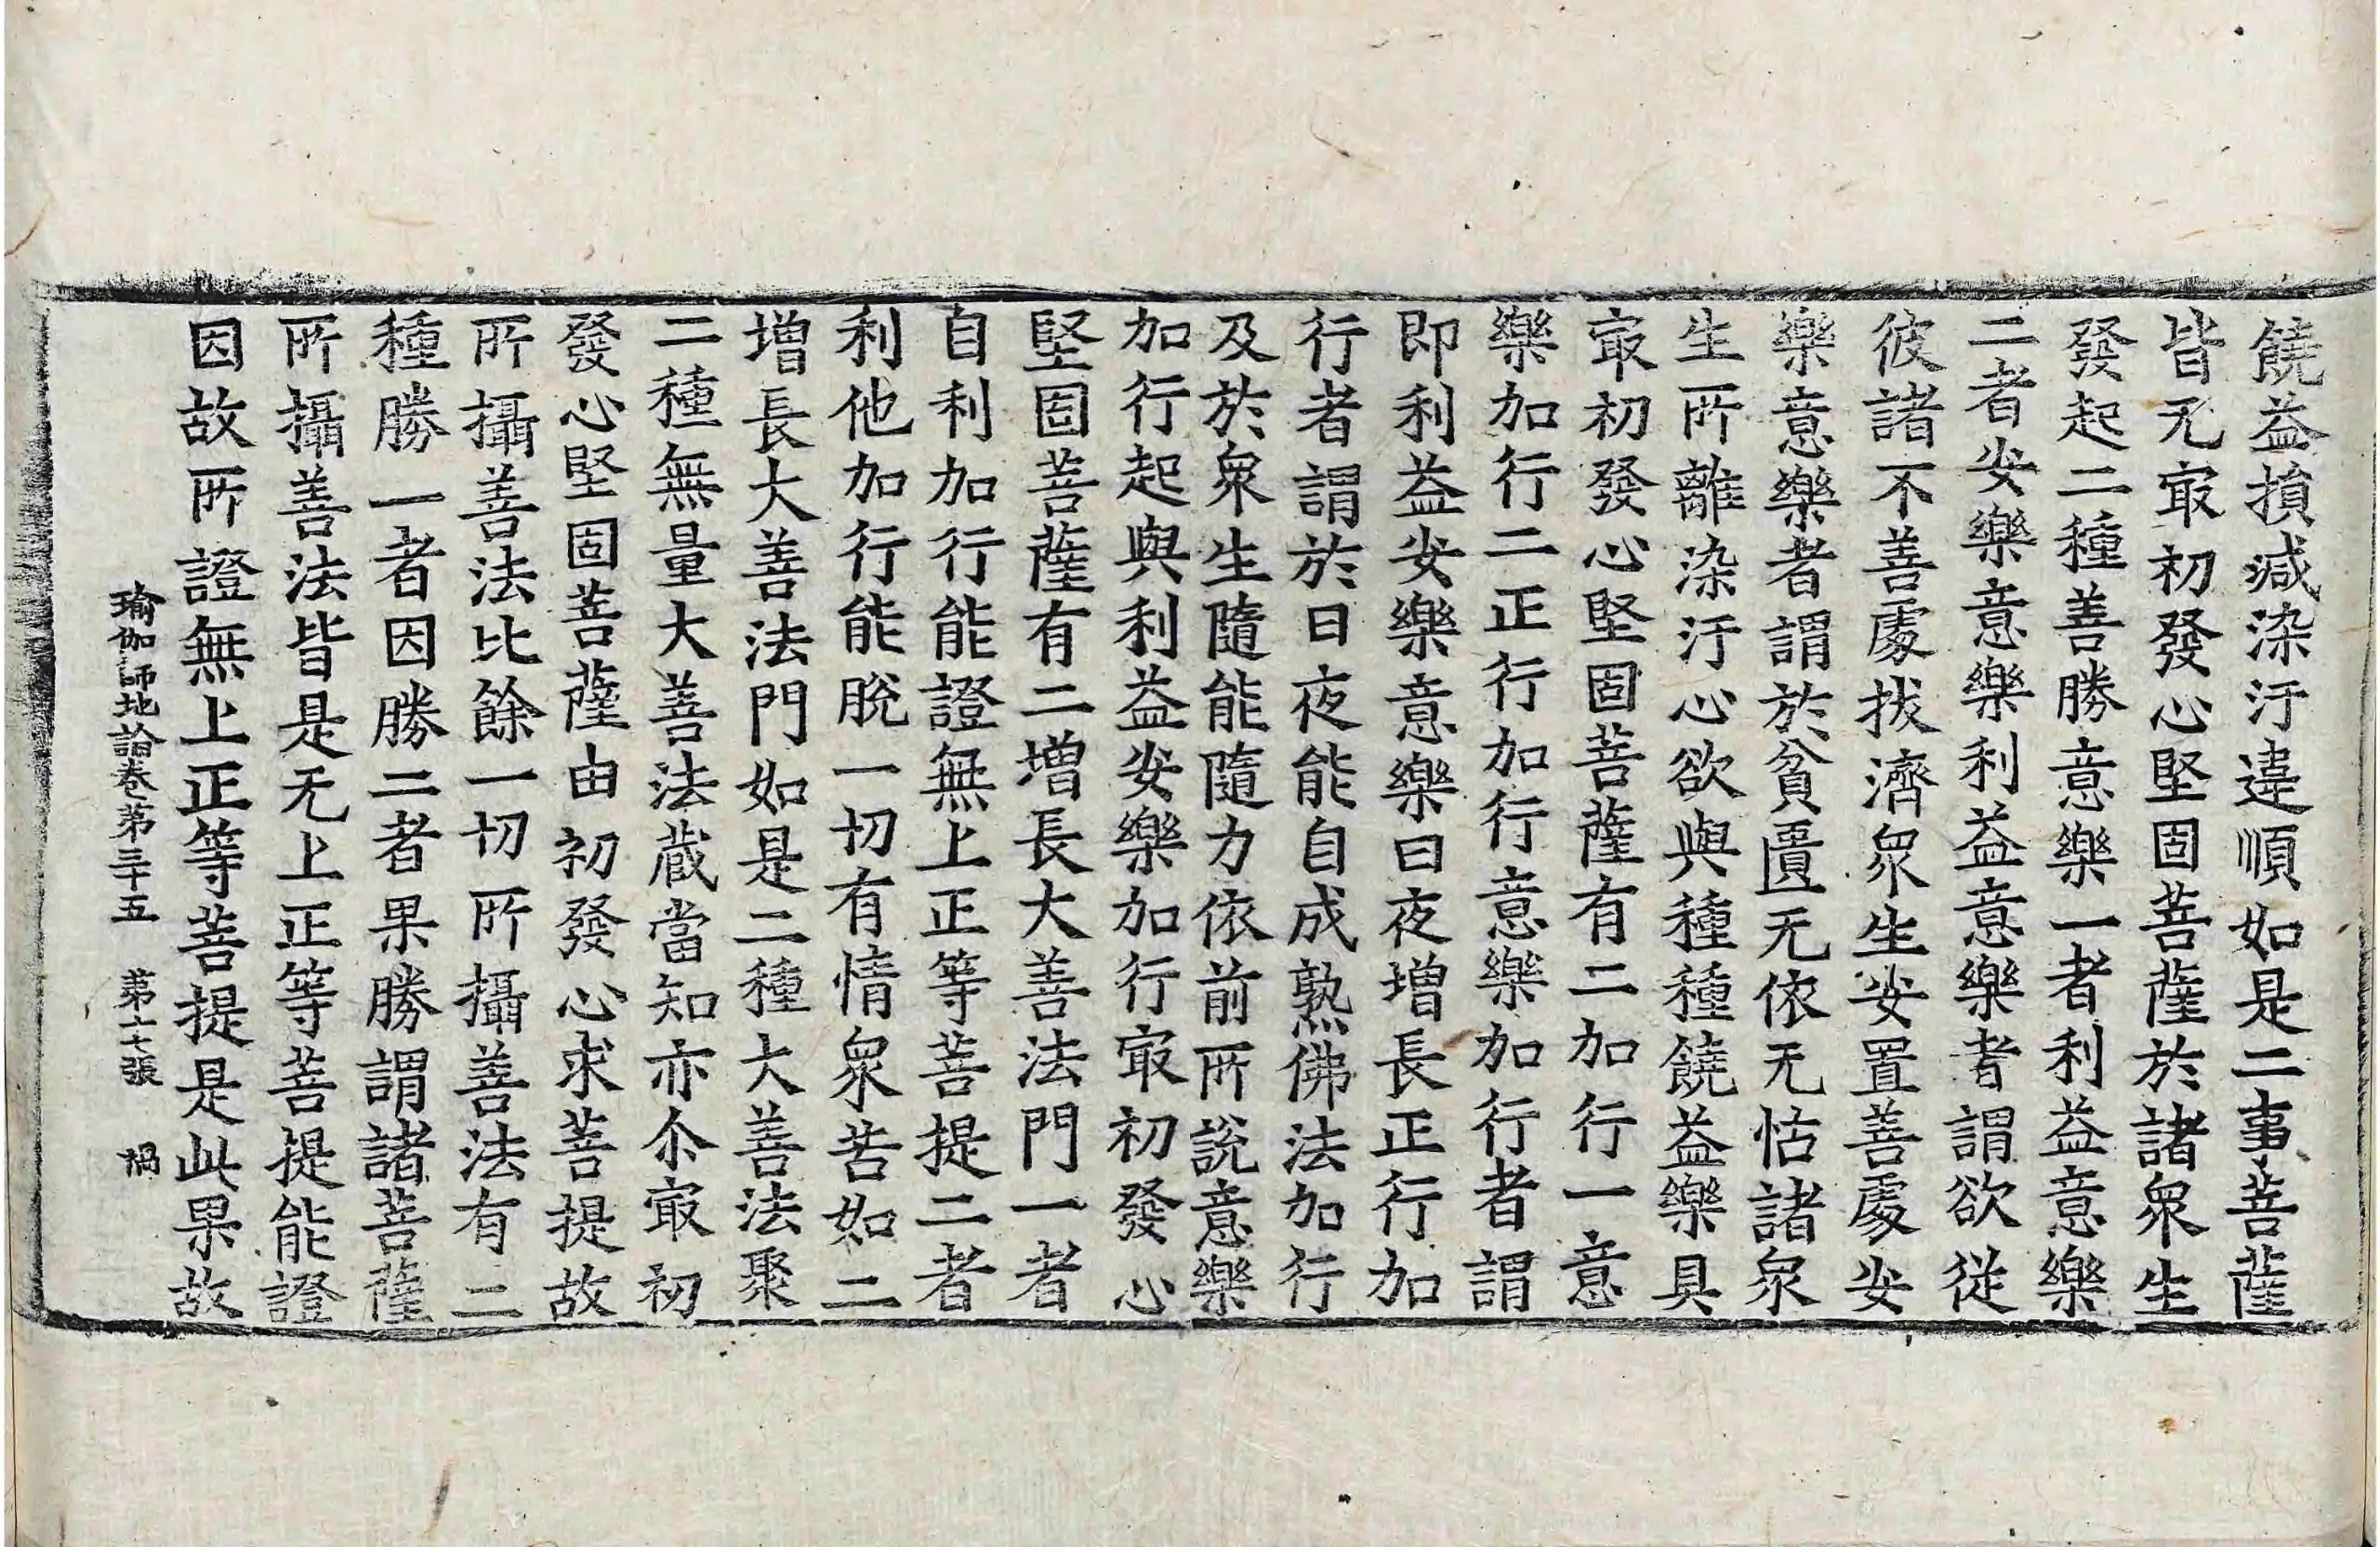 饒益損減染汙違順如是二事菩薩
皆无㝡初發心堅固菩薩於諸衆生
發起二種善勝意樂一者利益意樂
二者安樂意樂利益意樂者謂欲從
彼諸不善處拔濟衆生安置善處安
樂意樂者謂於貧匱无依无怙諸衆
生所離染汙心欲與種種饒益樂具
㝡初發心堅固菩薩有二加行一意
樂加行二正行加行意樂加行者謂
即利益安樂意樂日夜增長正行加
行者謂於日夜能自成熟佛法加行
及於衆生隨能隨力依前所說意樂
加行起與利益安樂加行㝡初發心
堅固菩薩有二增長大善法門一者
自利加行能證無上正等菩提二者
利他加行能脫一切有情衆苦如二
增長大善法門如是二種大善法聚
二種無量大善法藏當知亦尒㝡初
發心堅固菩薩由初發心求菩提故
所攝善法比餘一切所攝善法有二
種勝一者因勝二者果勝謂諸菩薩
所攝善法皆是无上正等菩提能證
因故所證無上正等菩提是此果故
瑜伽師地論卷第三十五 第十七張 禍